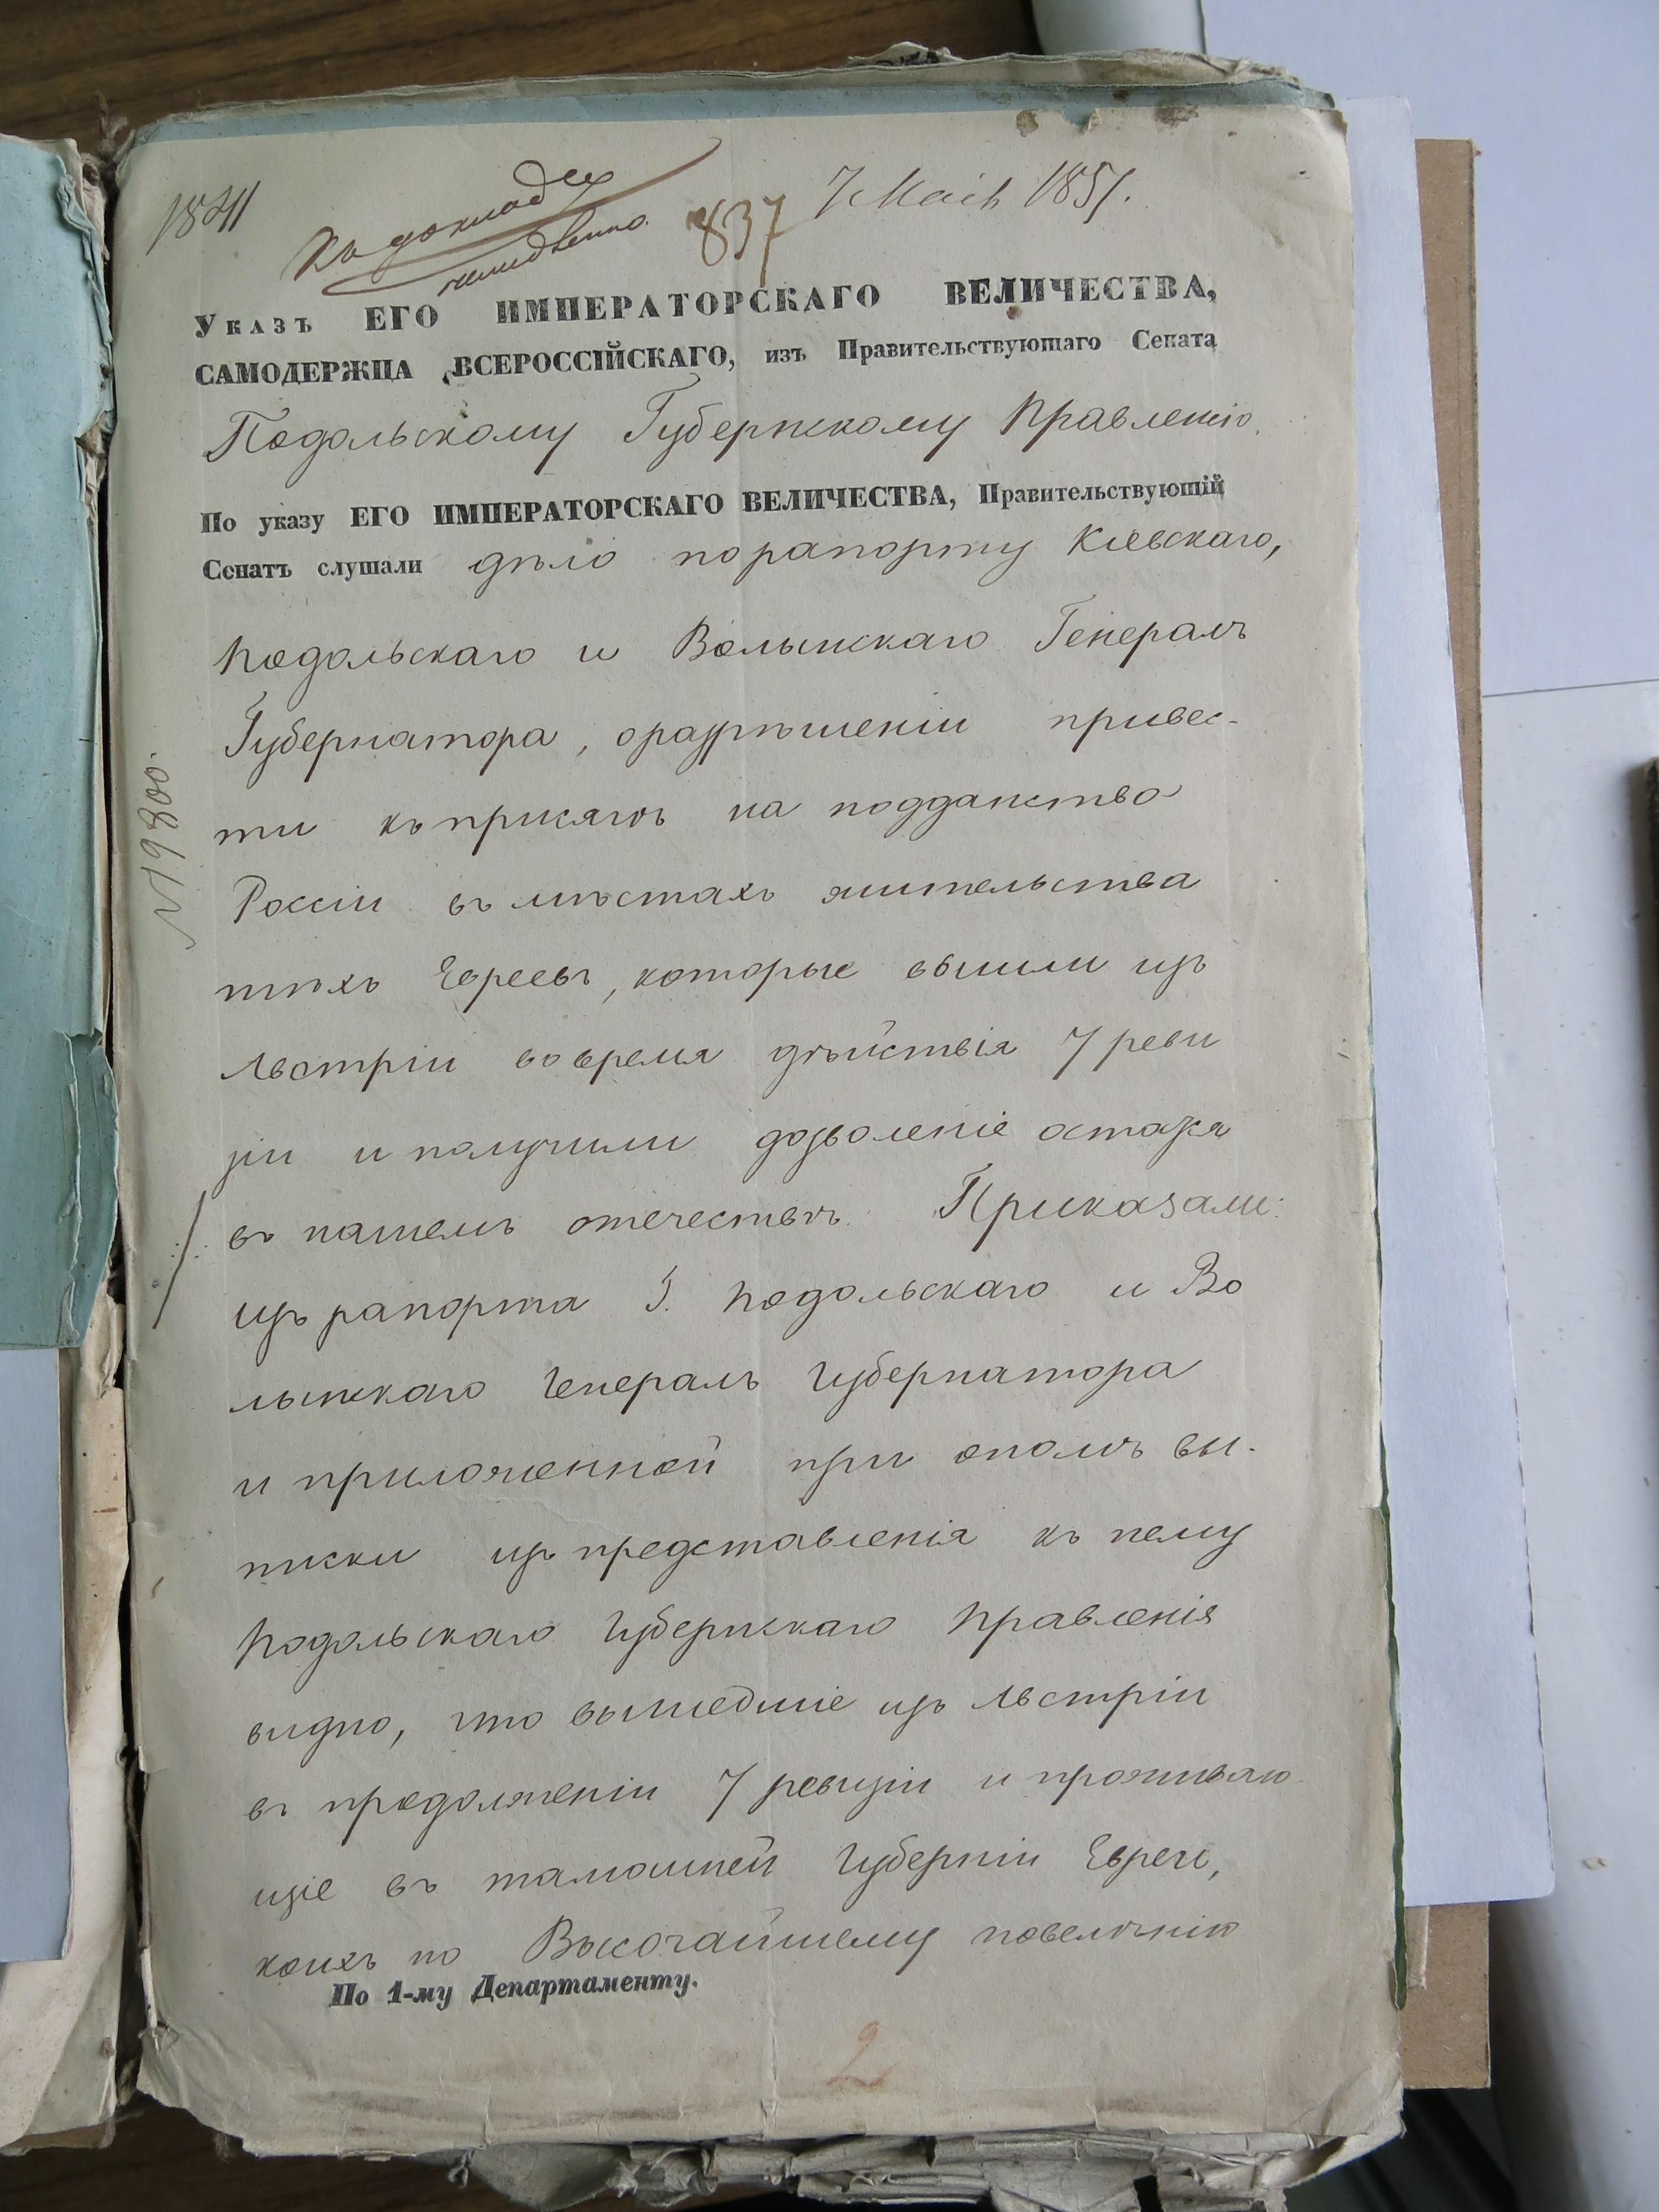 1841
Къ докладу
немедленно.
837
7 Маія 1851.
Указъ ЕГО ИМПЕРАТОРСКАГО ВЕЛИЧЕСТВА,
САМОДЕРЖЦА ВСЕРОССІЙСКАГО, изъ Правительствующаго Сената
Подольскому Губернскому Правленію.
По указу ЕГО ИМПЕРАТОРСКАГО ВЕЛИЧЕСТВА, Правительствующій
Сенатъ слушали дѣло по рапорту Кіевскаго,
Подольскаго и Волынскаго Генералъ
Губернатора, о разрѣшеніи привес-
ти къ присягѣ на подданство
Россіи въ мѣстахъ жительства
тѣхъ Евреевъ, которые вышли изъ
Австріи во время дѣйствія 7 реви
зіи и получили дозволеніе остатся
въ нашемъ отечествѣ. Приказали:
изъ рапорта Г. Подольскаго и Во
лынскаго Генералъ Губернатора
и приложенной при ономъ вы-
писки изъ представленія къ нему
Подольскаго Губернскаго Правленія
видно, что вышедшіе изъ Австріи
въ продолженіи 7 ревизіи и проживаю
щіе въ тамошней Губерніи Евреи,
коихъ по Высочайшему повелѣнію
По 1-му Департаменту.
2
№19800.